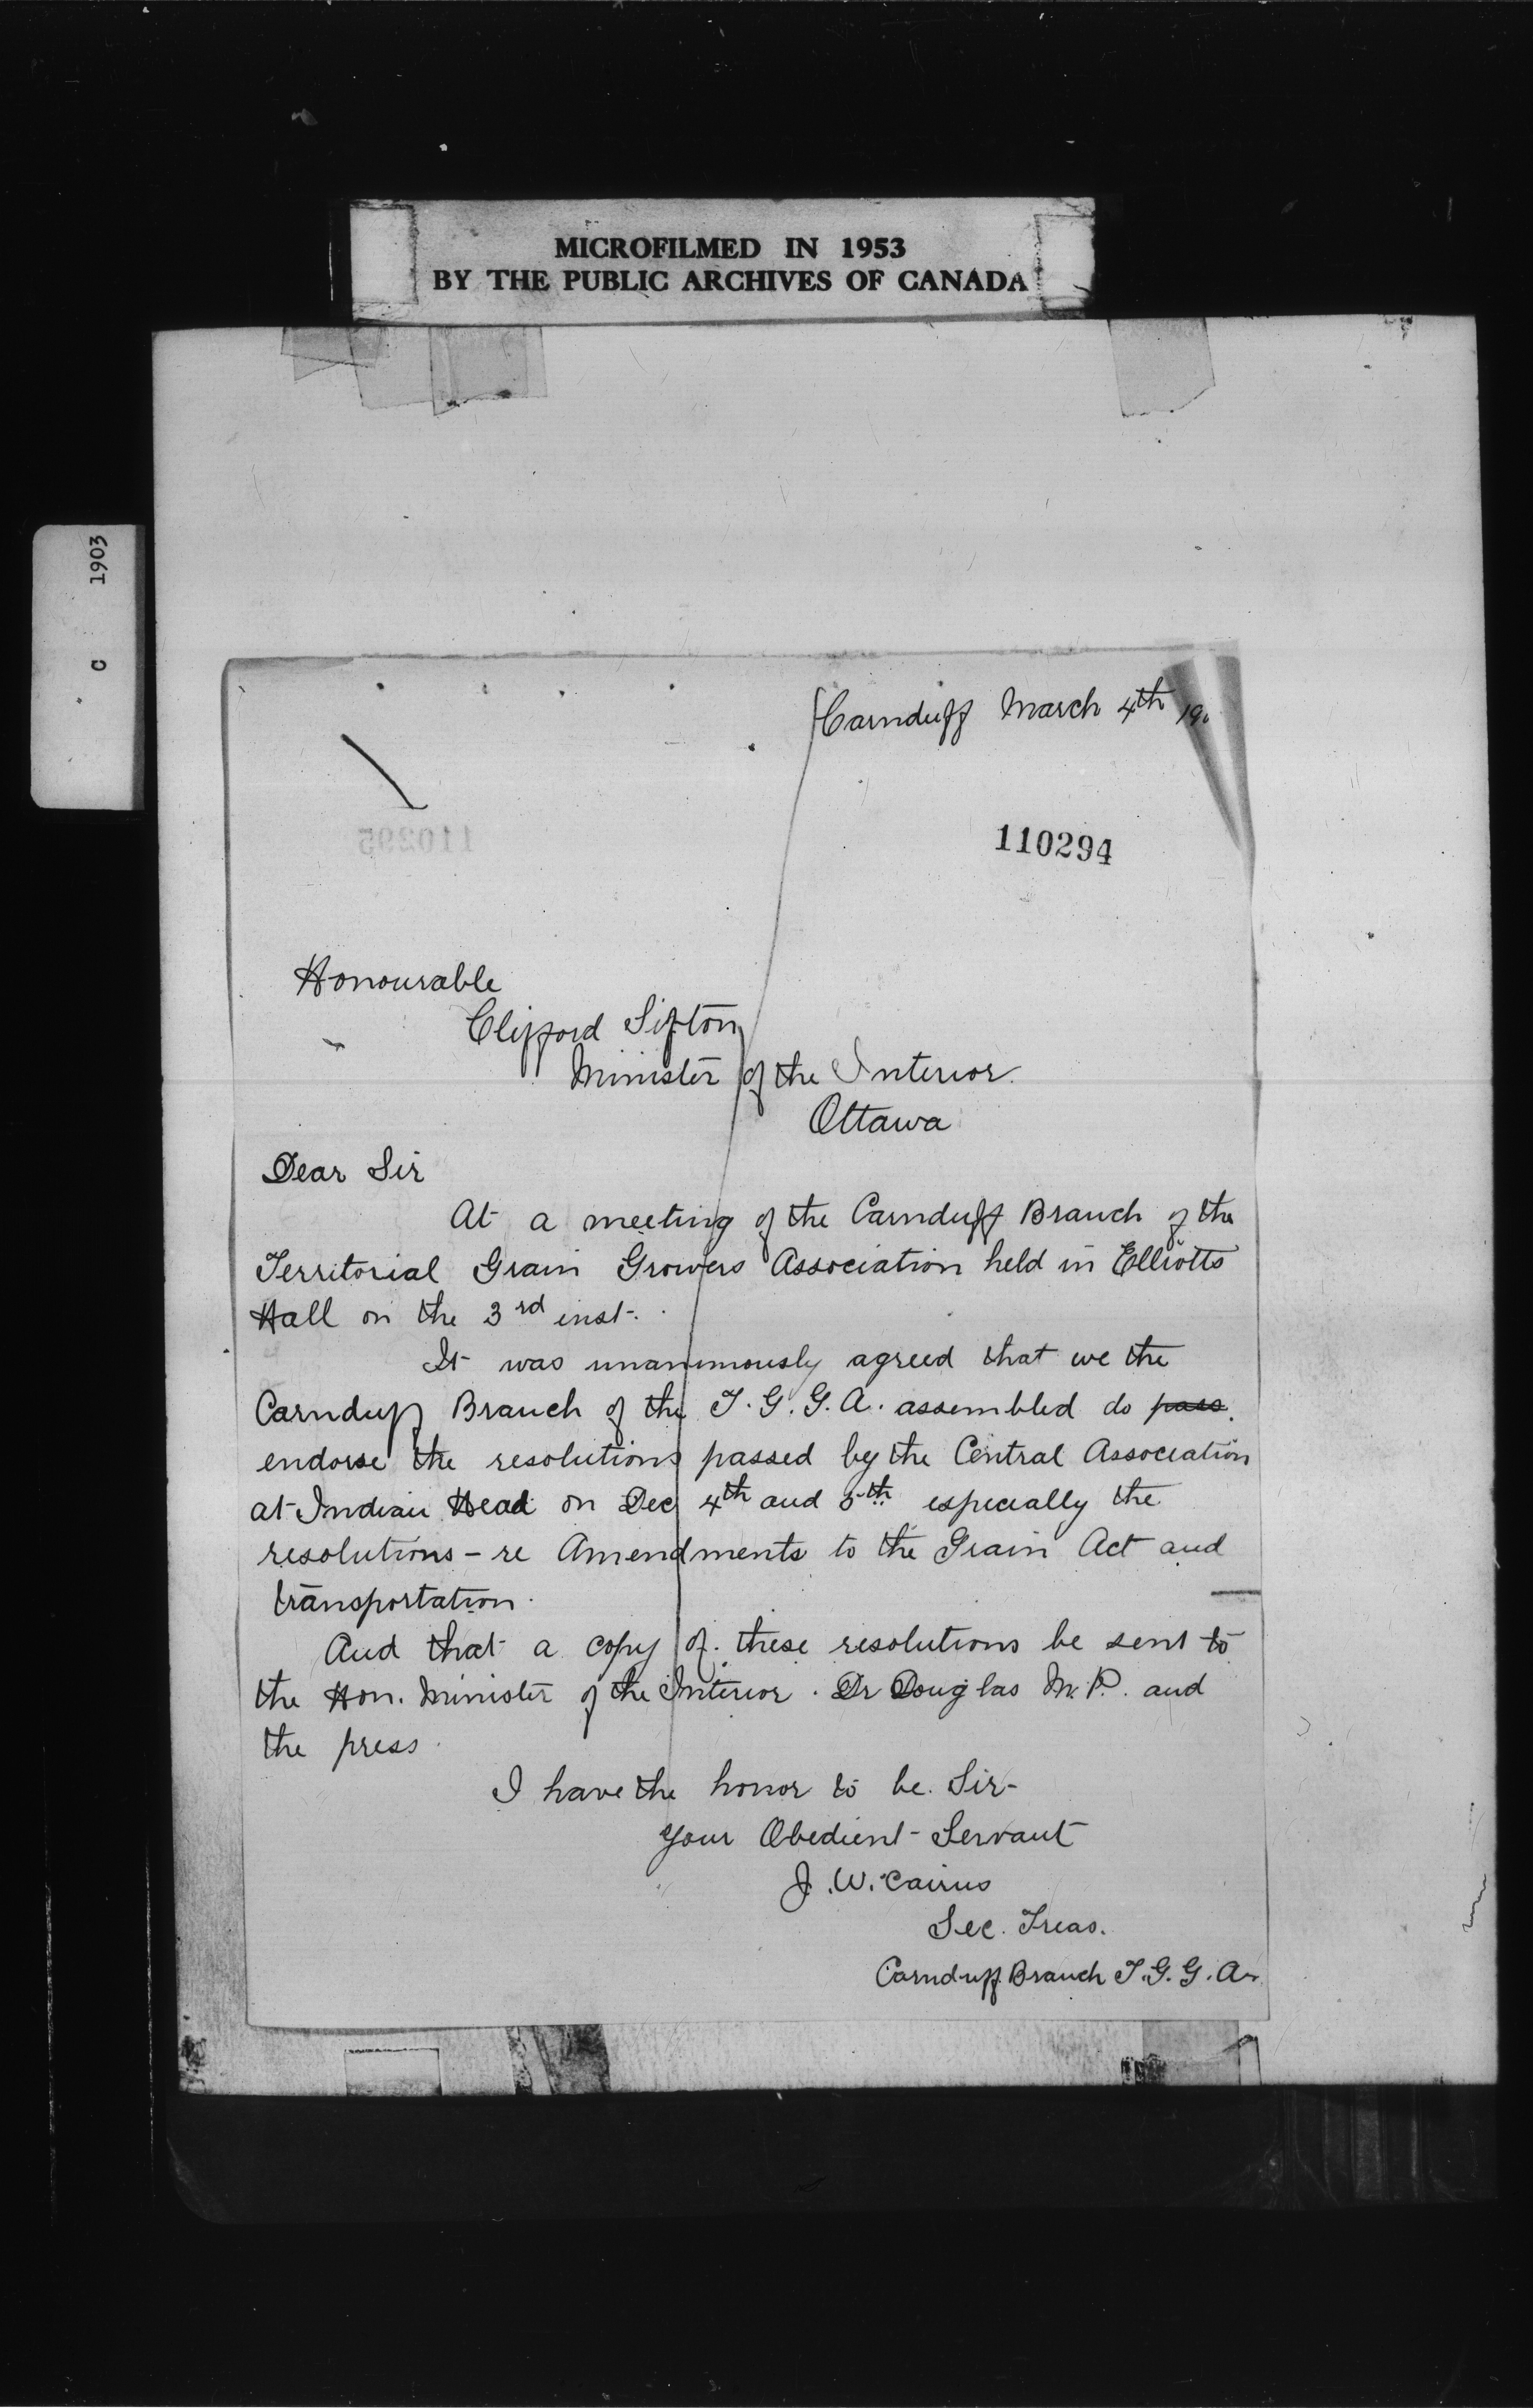 MICROFILMED IN 1953
BY THE PUBLIC ARCHIVES OF CANADA
C 1903
Carnduff March 4th 190
110294
110295
Honourable
Clifford Sifton
Minister of the Interior.
Ottawa
Dear Sir
At a meeting of the Carnduff Branch of the
Territorial Grain Growers Association held in Elliotts
Hall on the 3rd inst.
It was unanimously agreed that we the
Carnduff Branch of the T.G.G.A. assembled do pass.
endorse the resolutions passed by the Central Association
at Indian Head on Dec 4th and 5th especially the
resolutions - re Amendments to the Grain Act and
transportation.
And that a copy of these resolutions be sent to
the Hon. Minister of the Interior. Dr Douglas M.P. and
the press.
I have the honor to be. Sir-
Your Obedient Servant
J.W. Cairns
Sec. Treas.
Carnduff Branch T.G.G.A.